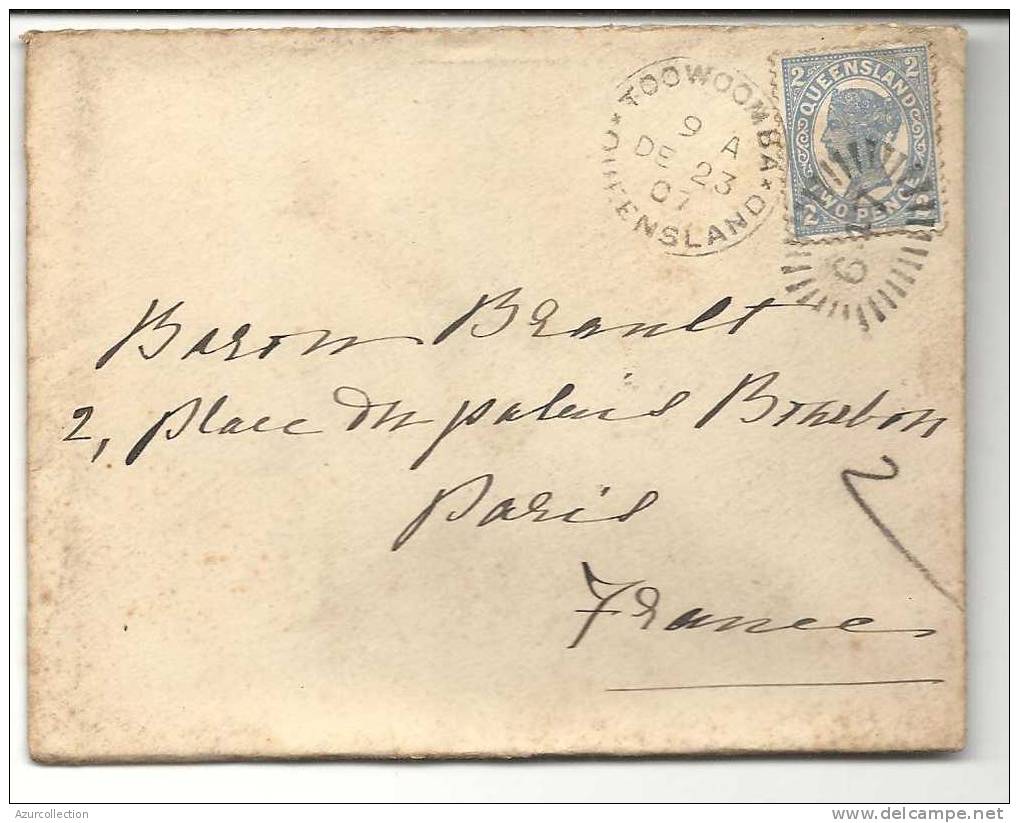 TOOWOOMBA
9 A
DE 23
07
QUEENSLAND
2 QUEENSLAND 2
TWO PENCE
2
Baron Brault
2, place du palais Bourbon
Paris
France
Azurcollection
delcampe.net